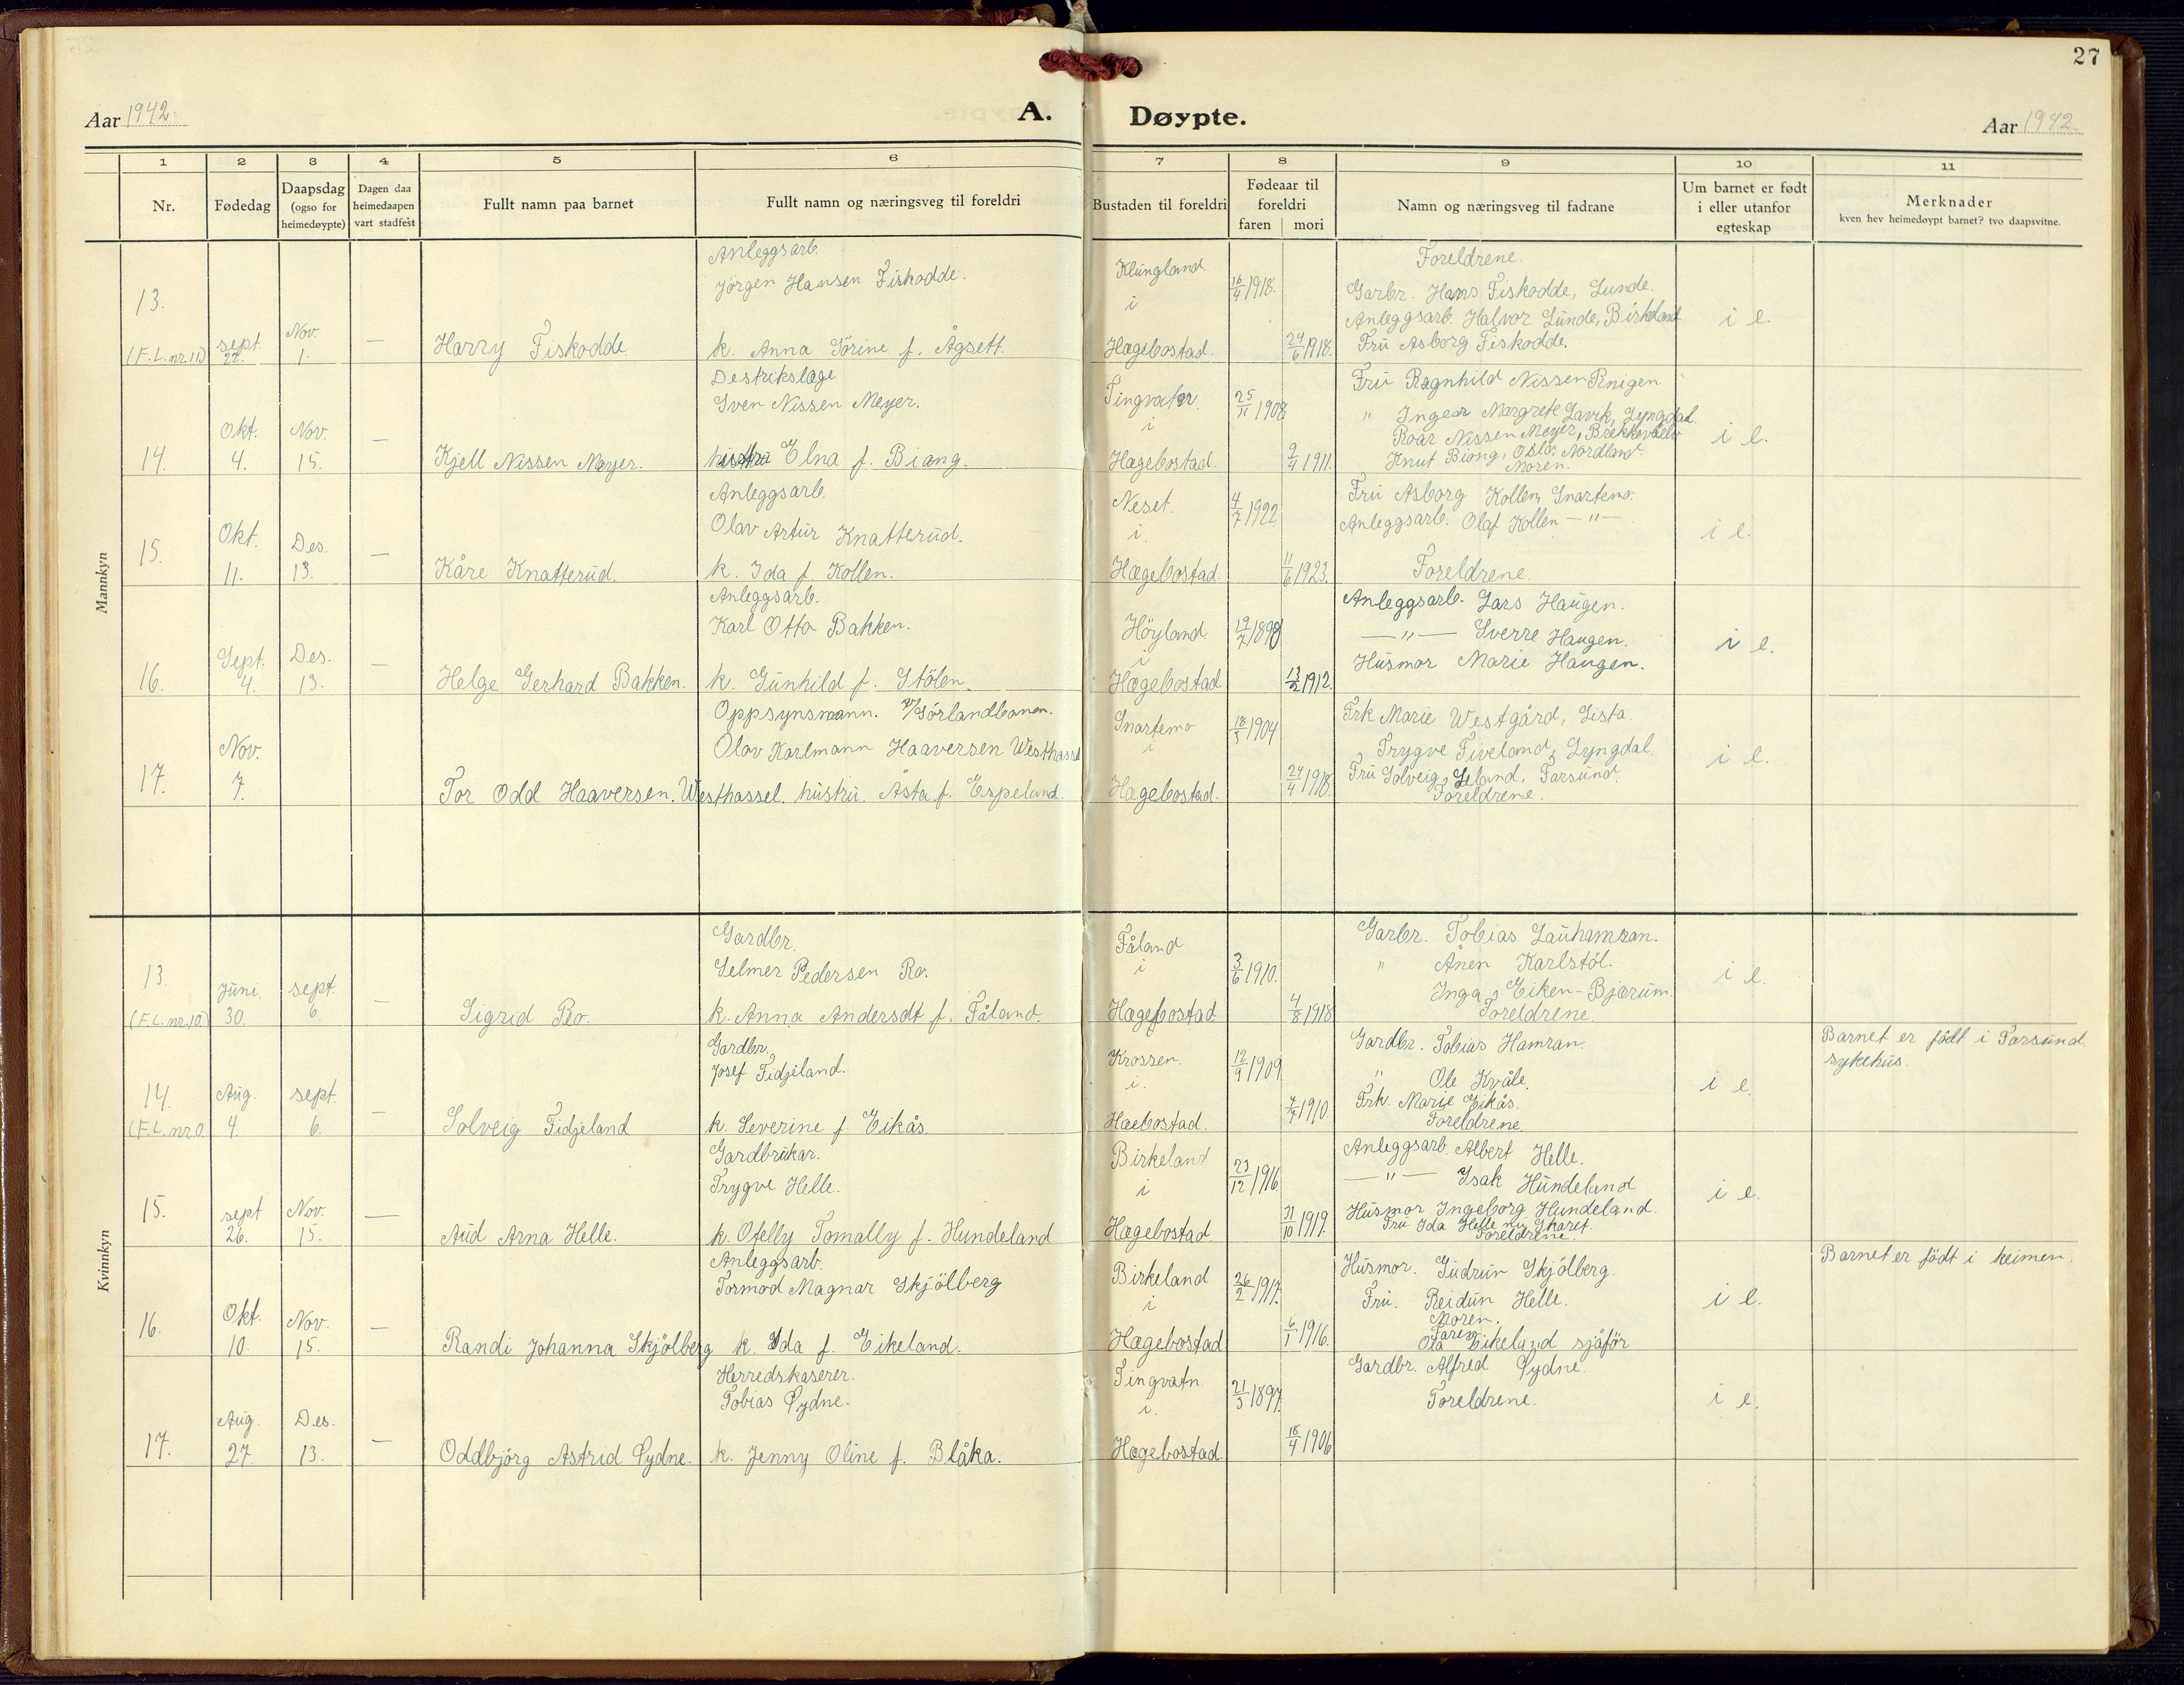 27
Aar 1942.
A. Døypte.
Aar 1942.
1 2 3 4 5 6 7 8 9 10 11
Nr.
Fødedag
Daapsdag
(ogso for
heimedøypte)
Dagen daa
heimedaapen
vart stadfest
Fullt namn paa barnet
Fullt namn og næringsveg til foreldri
Bustaden til foreldri
Fødeaar til
foreldri
faren mori
Namn og næringsveg til fadrane
Um barnet er født
i eller utanfor
egteskap
Merknader
kven hev heimedøypt barnet? tvo daapsvitne.
Mannkyn
13.
(F.L. nr. 11)
sept. 22.
Nov. 1.
—
Harry Fiskodde
Anleggsarb.
Jörgen Hansen Fiskodde.
k. Anna Sörine f. Ågsett.
Klungland.
i
Hægebostad.
16/4 1918.
24/6 1918.
Foreldrene.
Garbr. Hans Fiskodde, Lunde.
Anleggsarb. Halvor Lunde, Birkeland
Fru Asborg Fiskodde.
i e.
14.
Okt. 4.
Nov. 15.
—
Kjell Nissen Meyer.
Destrikslæge
Sven Nissen Meyer.
hustru Elna f. Biong.
Tingvatn
i
Hægebostad.
25/11 1908
2/4 1911.
Fru Ragnhild Nissen
" Inger Margrete Lavik, Lyngdal.
Roar Nissen Meyer,
Knut Biong, Oslo. Nordland
Moren.
i e.
15.
Okt. 11.
Des. 13.
—
Kåre Knatterud.
Anleggsarb.
Olav Artur Knatterud.
k. Ida f. Kollen.
Neset.
i.
Hægebostad.
4/7 1922
11/6 1923.
Fru Asborg Kollen, Snartemo.
Anleggsarb. Olaf Kollen — " —
Foreldrene.
i e.
16.
Sept. 4.
Des. 13.
—
Helge Gerhard Bakken.
Anleggsarb.
Karl Otto Bakken.
k. Gunhild f. Stölen.
Höyland.
i
Hægebostad
19/7 1898
13/2 1912.
Anleggsarb. Lars Haugen.
— " — Sverre Haugen.
Husmor Marie Haugen.
i e.
17.
Nov. 7.
Tor Odd Haaversen Westhassel.
Oppsynsmann. v/Sörlandbanen.
Olav Karlmann Haaversen Westhassel
hustru. Åsta f. Espeland.
Snartemo
i
Hægebostad.
18/3 1904
24/4 1918.
Frk Marie Westgård, Lista.
Trygve Fiveland, Lyngdal.
Fru Solveig Leland, Farsund.
Foreldrene.
i e.
Kvinnkyn
13.
(F.L. nr. 10)
Juni. 30.
sept. 6
—
Sigrid Ro.
Gardbr.
Selmer Pedersen Ro.
k. Anna Andersdt f. Fåland.
Fåland
i
Hægebostad
3/6 1910.
4/8 1918
Garbr. Tobias Lauhamran.
" Ånen Karlstöl.
Inga Eiken-Bjærum.
Foreldrene.
i e.
14.
Aug. 4.
sept. 6.
—
Solveig Fidjeland
Gardbr.
Josef Fidjeland.
k. Severine f Eikås.
Krossen.
i.
Haebostad.
12/9 1909
7/7 1910.
Gardbr. Tobias Hamran.
" Ole Kvåle.
Frk. Marie Eikås.
Foreldrene.
i e.
Barnet er födt i Farsund
sykehus.
15.
sept 26.
Nov. 15.
—
Aud Arna Helle.
Gardbrukar.
Trygve Helle.
k. Otelly Tomally f. Hundeland
Birkeland
i
Hægebostad
23/12 1916
31/10 1919.
Anleggsarb. Albert Helle.
— " — Isak Hundeland
Husmor Ingeborg Hundeland.
Fru Ida Helle
Foreldrene.
i e.
16.
Okt. 10.
Nov. 15.
—
Randi Johanna Skjölberg
Anleggsarb.
Tormod Magnar Skjölberg
k. Ida f. Eikeland.
Birkeland
i
Hægebostad
26/2 1917.
6/1 1916.
Husmor. Gudrun Skjölberg.
Fru. Reidun Helle.
Moren.
Faren
Ola Eikeland sjåför
i e.
Barnet er födt i heimen.
17.
Aug. 27.
Des. 13.
—
Oddbjörg Astrid Øydne.
Herredskaserer.
Tobias Øydne.
k. Jenny Oline f. Blåka.
Tingvatn
i.
Hægebostad.
21/3 1897.
18/4 1906
Gardbr. Alfred Øydne
Foreldrene.
i e.